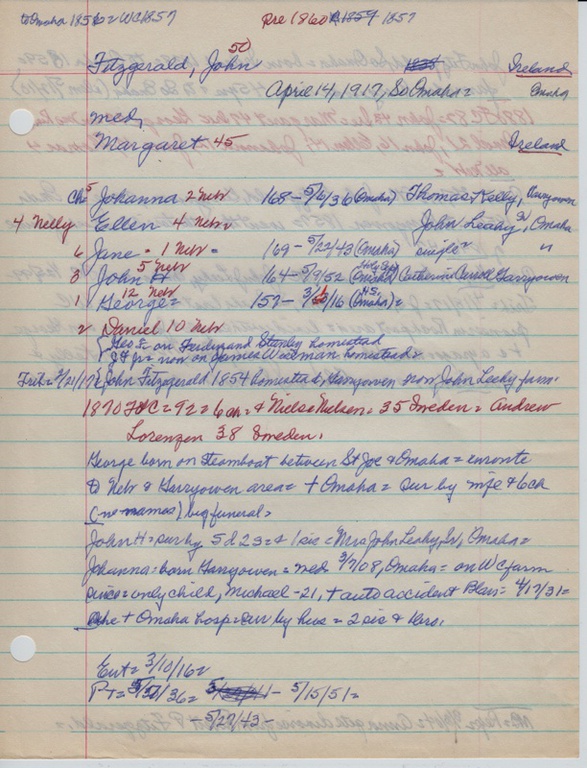 to Omaha 1856 or WC 1857 Pre 1860 1859 1857
Fitzgerald, John 50 Ireland
April 14, 1917, So Omaha= Omaha
med,
Margaret 45 Ireland
Ch= 5 Johanna 2 Nebr 168 - 5/4/36 (Omaha) Thomas Kelly, Garryowen
4 Nelly Ellen 4 Nebr John Leahy, Sr, Omaha
6 Jane = 1 Nebr = 169 - 5/22/43 (Omaha) single= "
3 John H 5 Nebr 164 - 5/9/52 (Omaha) Holy Sep Catherine Carroll Garryowen
1 George= 12 Nebr 157 - 3/ /16 (Omaha)= H.S.
2 Daniel 10 Nebr
{Geo F= on Ferdinand Stanley homestead
{J H Jr= now on James Wiseman homestead=
Frit= 3/21/17= John Fitzgerald 1854 homestead, Garryowen now John Leahy farm.
1870 FC= 72= 6 ch= & Niels Nielsen= 35 Sweden= Andrew
Lorenzen 38 Sweden.
George born on steamboat between St Joe & Omaha= enroute
to Nebr & Garryowen area= + Omaha= sur by wife & 6 ch
(no names) big funeral=
John H= sur by 5 d 2 s= & 1 sis= Mrs John Leahy, Sr, Omaha=
Johanna= born Garryowen= med 3/7/08, Omaha= on WC farm
since= only child, Michael - 21, + auto accident Blair= 4/17/31=
she + Omaha hosp= sur by hus= 2 sis & bro.
Ent= 3/10/16=
PT= 5/ /36= - 5/15/51=
- 5/27/43 -